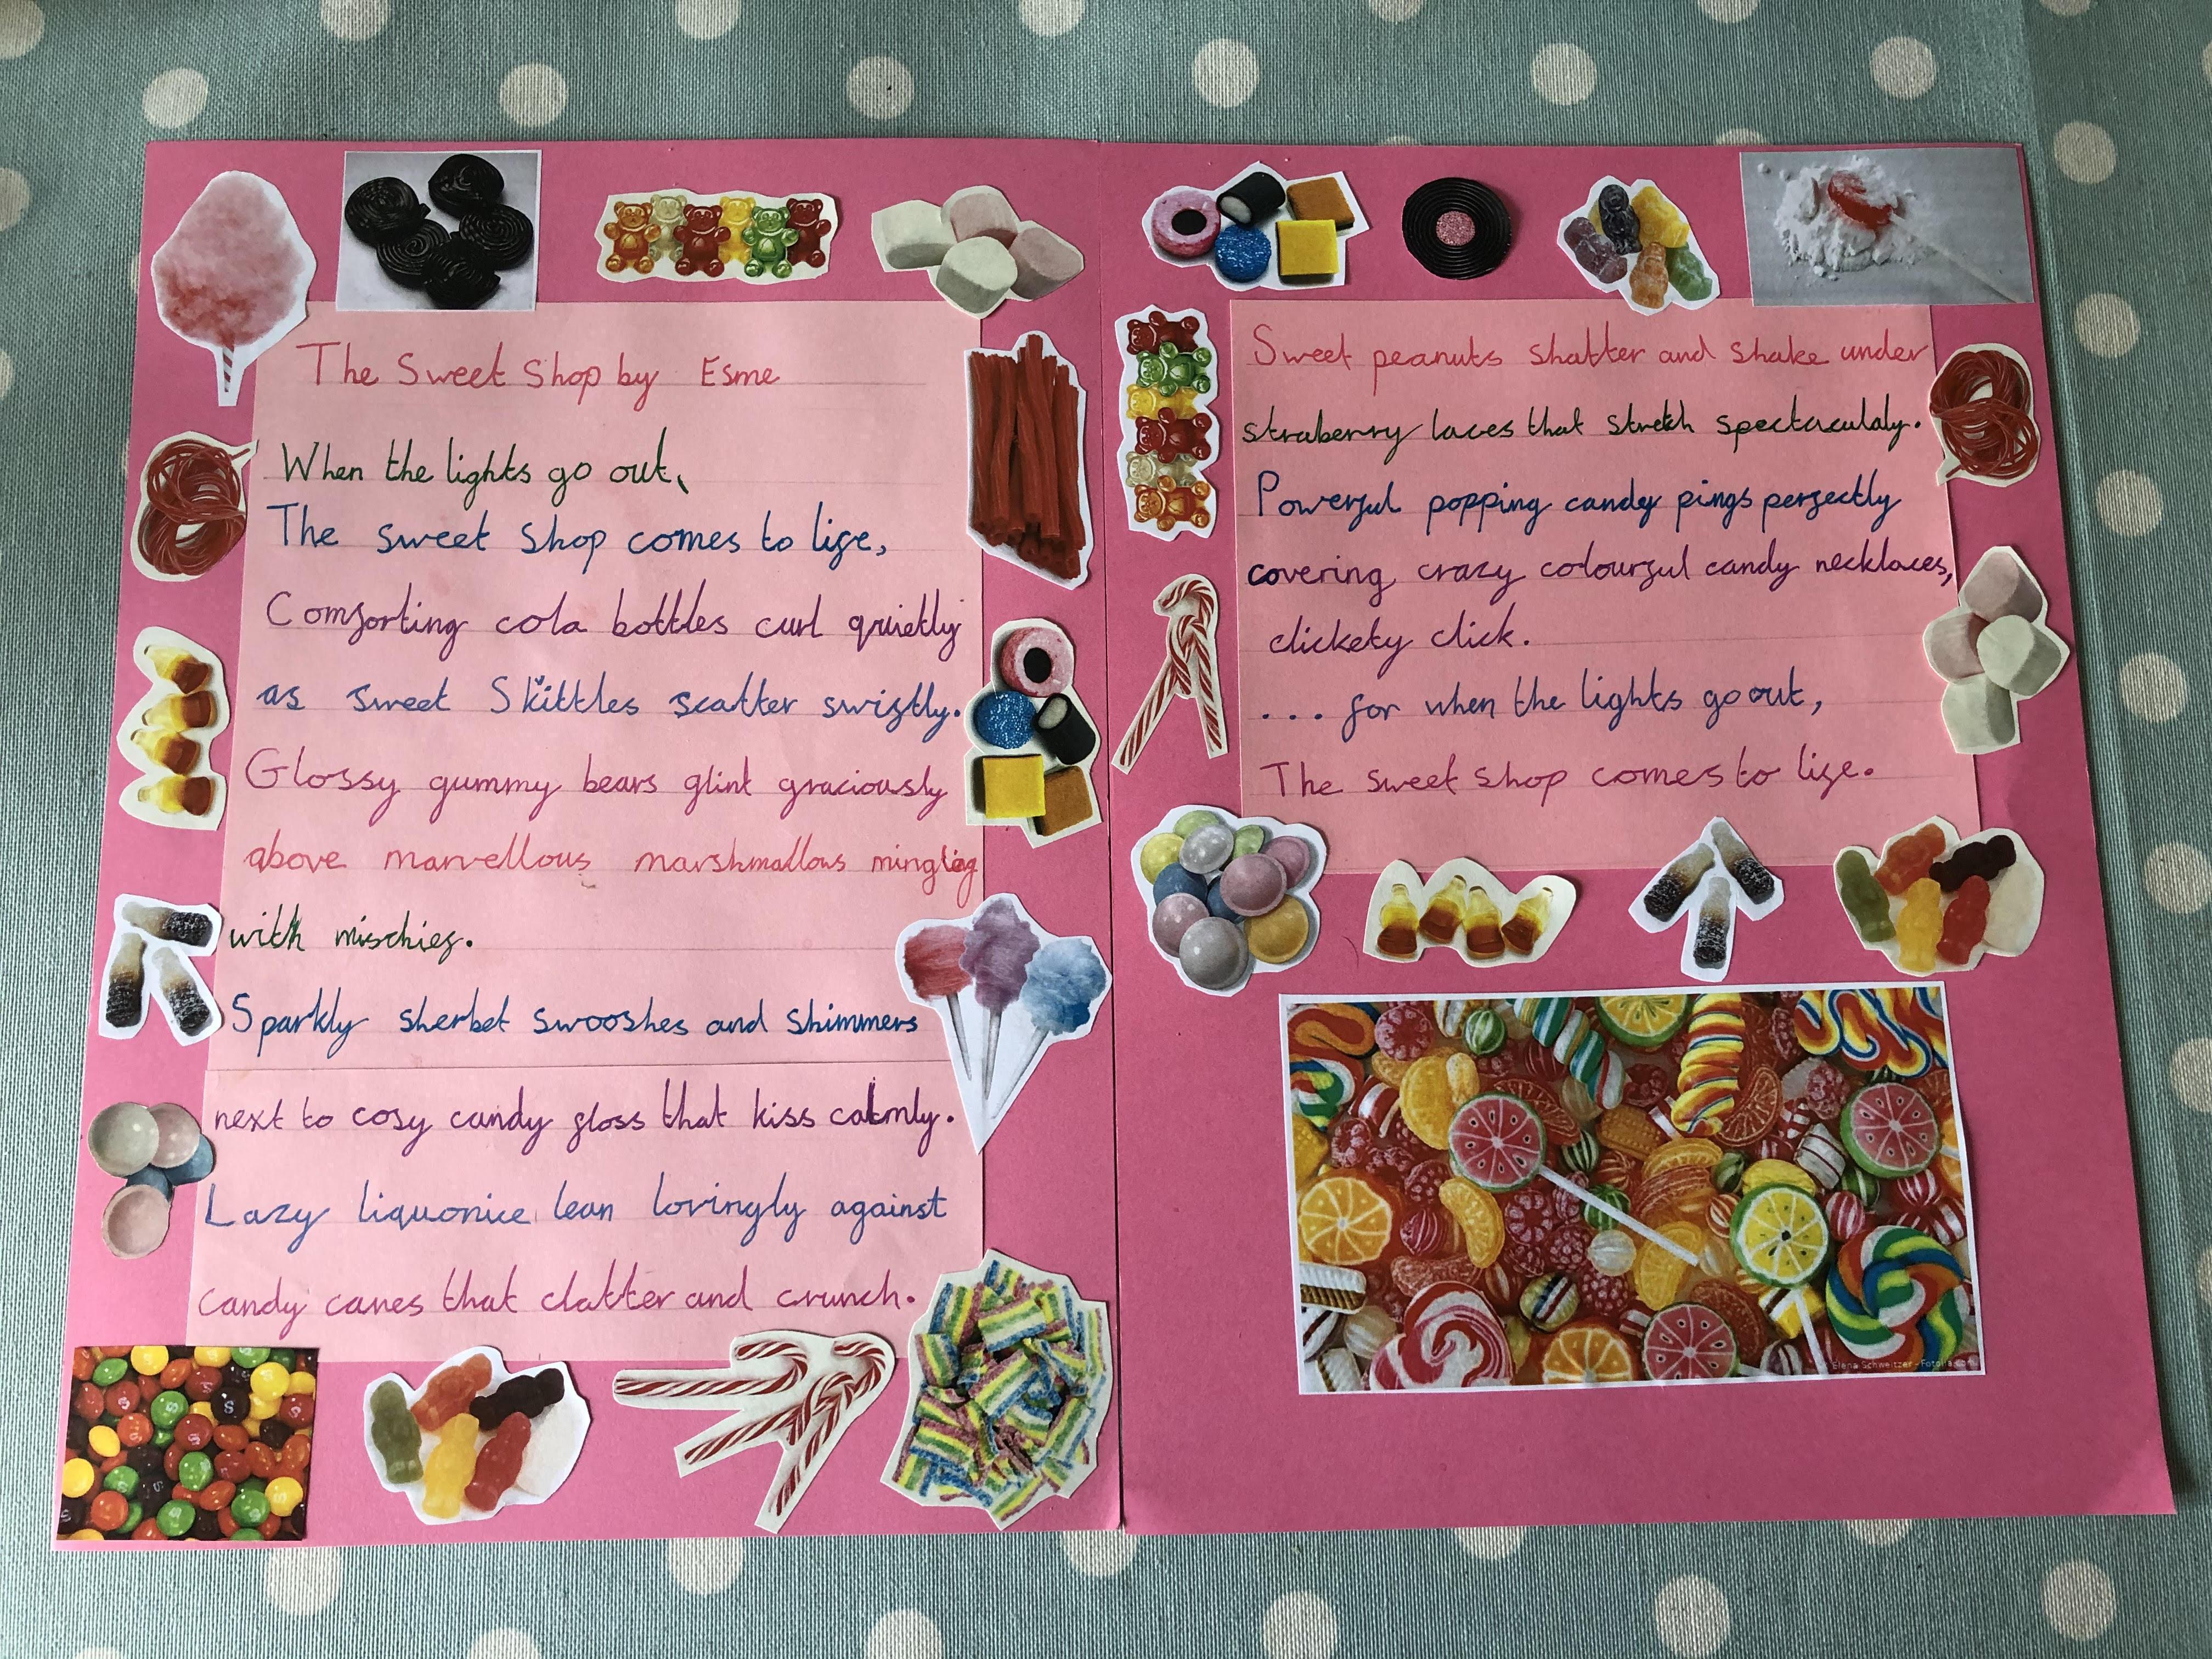 The Sweet Shop by Esme
When the lights go out,
The sweet shop comes to life,
Comforting cola bottles curl quietly
as sweet Skittles scatter swiftly.
Glossy gummy bears glint graciously
above marvellous marshmallows mingling
with mischief.
Sparkly sherbet swooshes and shimmers
next to cosy candy floss that kiss calmly.
Lazy liquorice lean lovingly against
candy canes that clatter and crunch.
Sweet peanuts shatter and shake under
straberry laces that stretch spectaculaly.
Powerful popping candy pings perfectly
covering crazy colourful candy necklaces,
clickety click.
... for when the lights go out,
The sweet shop comes to life.
Elena Schweitzer - Fotolia.com